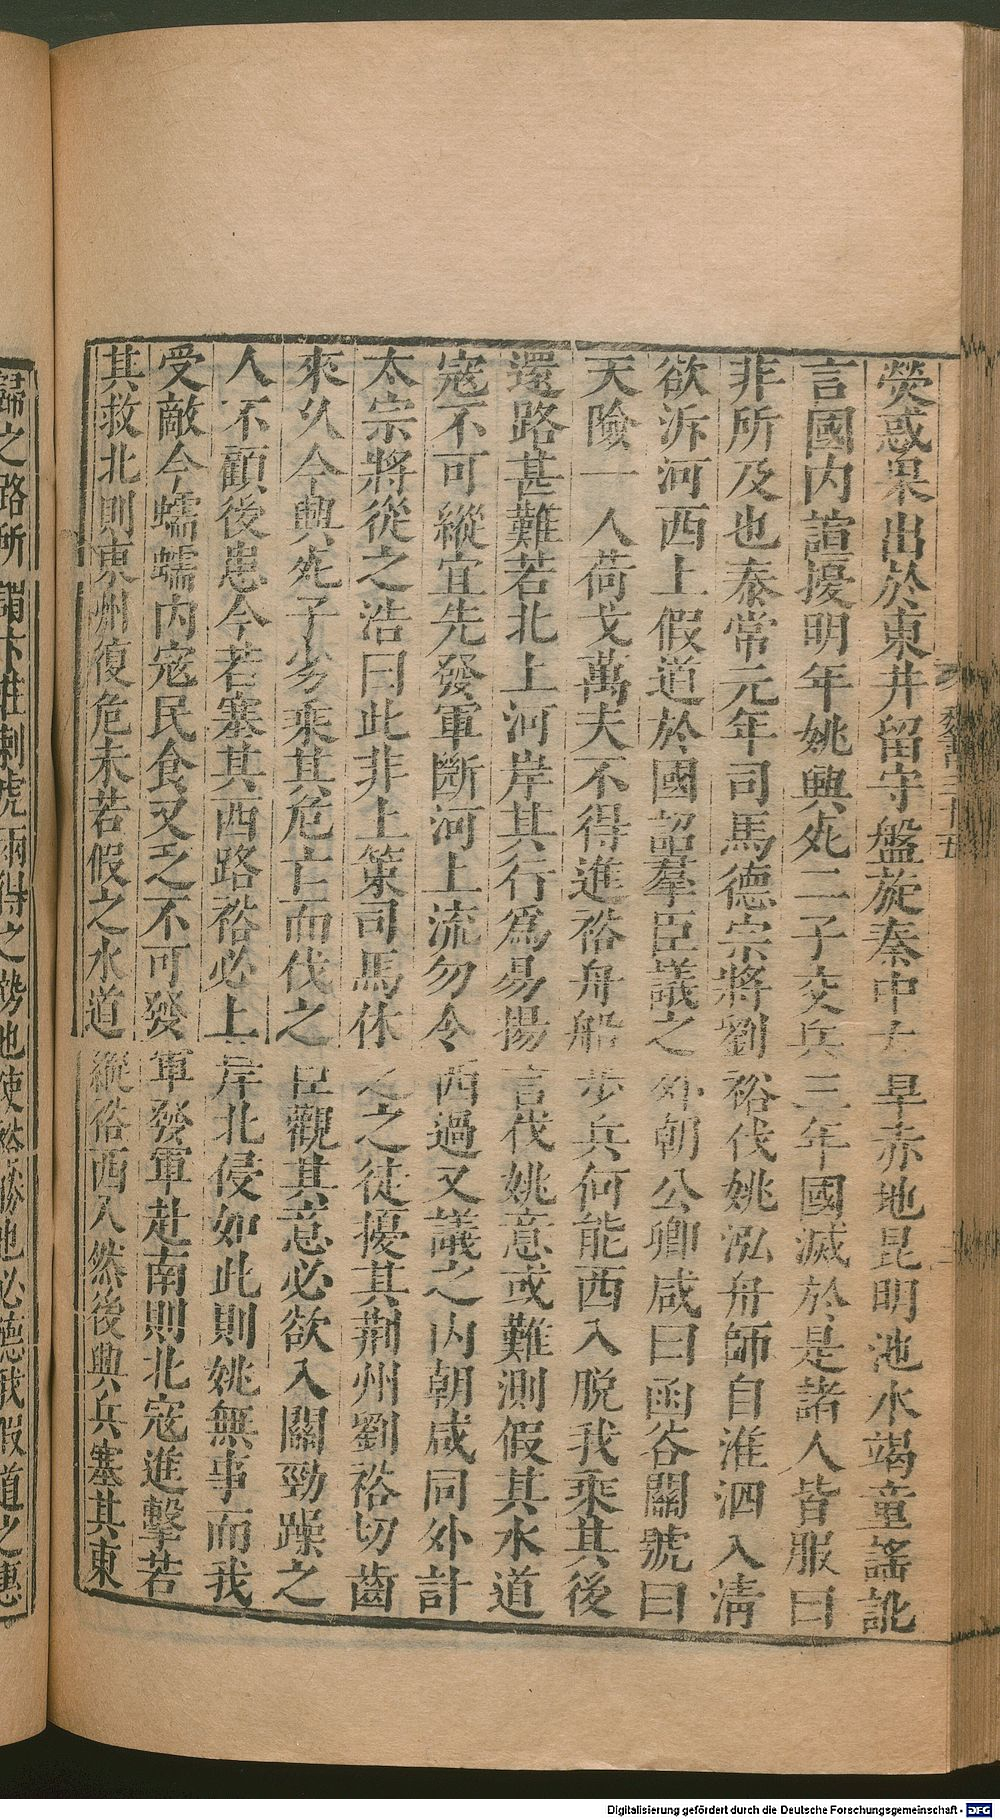 熒惑果出於東井留守盤旋秦中大旱赤地昆明池水竭童謠訛
言國內諠擾明年姚興死二子交兵三年國滅於是諸人皆服曰
非所及也泰常元年司馬德宗將劉裕伐姚泓舟師自淮泗入清
欲泝河西上假道於國詔羣臣議之外朝公卿咸曰函谷關號曰
天險一人荷戈萬夫不得進裕舟船步兵何能西入脫我乘其後
還路甚難若北上河岸其行爲易揚言伐姚意或難測假其水道
寇不可縱宜先發軍斷河上流勿令西過又議之內朝咸同外計
太宗將從之浩曰此非上策司馬休之之徒擾其荆州劉裕切齒
來久今興死子劣乘其危亡而伐之臣觀其意必欲入關勁躁之
人不顧後患今若塞其西路裕必上岸北侵如此則姚無事而我
受敵今蠕蠕內寇民食又乏不可發軍發軍赴南則北寇進擊若
其救北則東州復危未若假之水道縱裕西入然後興兵塞其東
歸之路所謂卞莊刺虎兩得之勢也使裕勝也必德我假道之惠
Digitalisierung gefördert durch die Deutsche Forschungsgemeinschaft - DFG